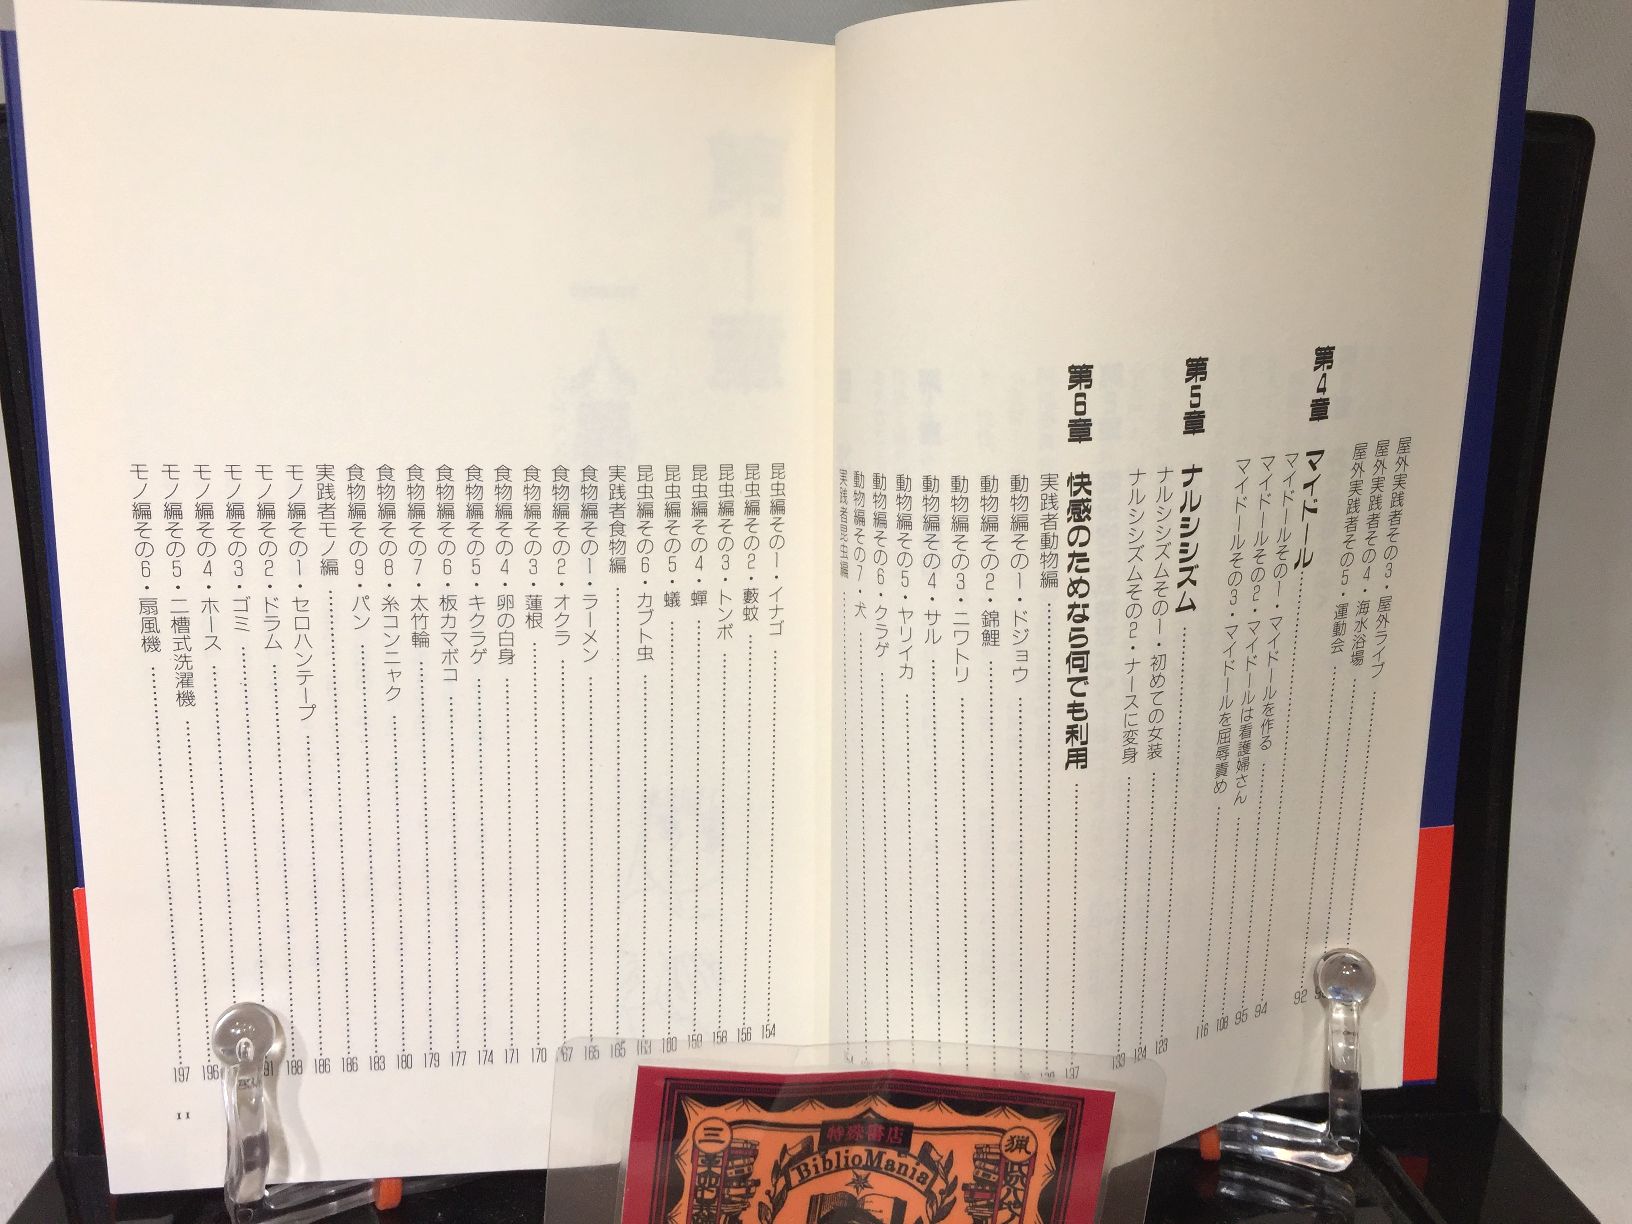 屋外実践者その3・屋外ライブ
屋外実践者その4・海水浴場
屋外実践者その5・運動会
第4章 マイドール 92
マイドールその1・マイドールを作る 94
マイドールその2・マイドールは看護婦さん 95
マイドールその3・マイドールを屈辱責め 108
第5章 ナルシシズム 116
ナルシシズムその1・初めての女装 123
ナルシシズムその2・ナースに変身 124
第6章 快感のためなら何でも利用 133
実践者動物編 137
動物編その1・ドジョウ
動物編その2・錦鯉
動物編その3・ニワトリ
動物編その4・サル
動物編その5・ヤリイカ
動物編その6・クラゲ
動物編その7・犬
実践者昆虫編
昆虫編その1・イナゴ 154
昆虫編その2・藪蚊 156
昆虫編その3・トンボ 158
昆虫編その4・蟬 159
昆虫編その5・蟻 160
昆虫編その6・カブト虫 163
実践者食物編 165
食物編その1・ラーメン 165
食物編その2・オクラ 167
食物編その3・蓮根 170
食物編その4・卵の白身 171
食物編その5・キクラゲ 174
食物編その6・板カマボコ 177
食物編その7・太竹輪 179
食物編その8・糸コンニャク 180
食物編その9・パン 183
実践者モノ編 186
モノ編その1・セロハンテープ 186
モノ編その2・ドラム 188
モノ編その3・ゴミ
モノ編その4・ホース
モノ編その5・二槽式洗濯機 196
モノ編その6・扇風機 197
11
特殊書店
BiblioMania
三
猟